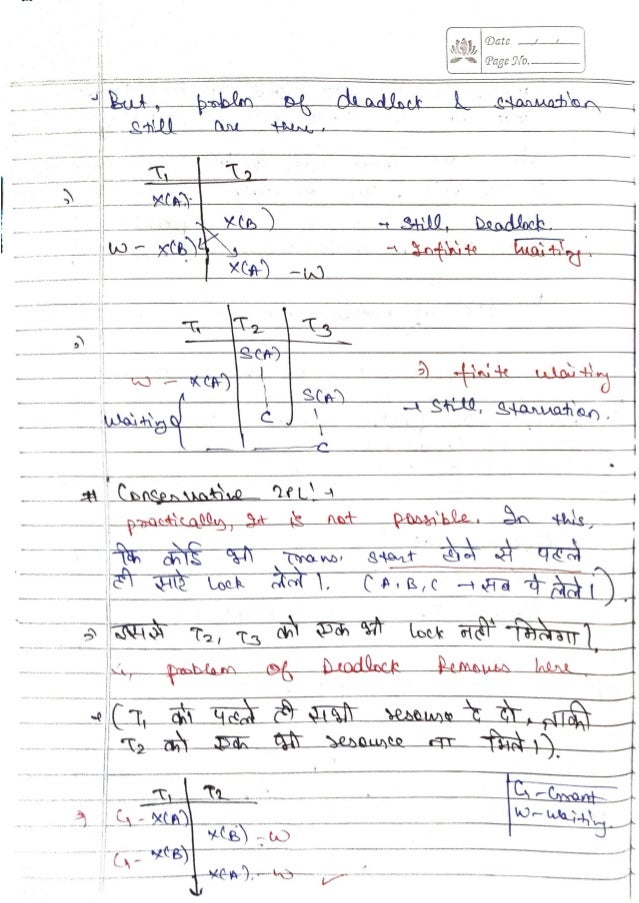 Date
Page No.
But, problm of deadlock & starvation
still are there.
T1 T2
X(A)
X(B) → Still, Deadlock.
W - X(B) → Infinite Waiting.
X(A) - W
T1 T2 T3
S(A)
W - X(A) ⇒ finite waiting
S(A)
Waiting C → Still, Starvation.
C
# Conservative 2PL! →
practically, It is not possible. In this,
कि कोई भी Trans. start होने से पहले
ही सारे Lock लेले।. (A, B, C → सब ये लेले।)
⇒ जिससे T2, T3 को एक भी lock नहीं मिलेगा?
problem of Deadlock Removes here.
→ (T1 को पहले ही सभी resouse दे दो, ताकी
T2 को एक भी resource ना मिले।).
T1 T2 G - Grant
⇒ G - X(A) W - Waiting.
X(B) - W
G - X(B)
X(A). - W ✓